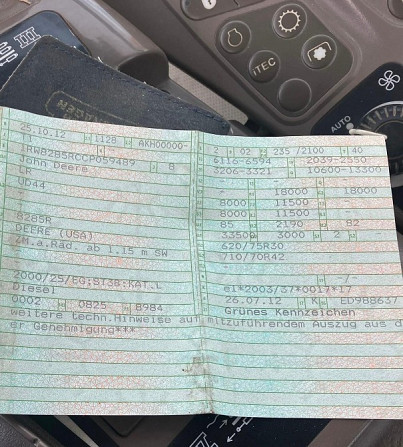 III
iTEC
AUTO
25.10.12 1128 AKH00000-
1RW8285RCCP059489 8
John Deere
LR
UD44
8285R
DEERE (USA)
ZM.a.Räd. ab 1.15 m SW
2000/25/EG;ST3B:KAT.L
Diesel
0002 0825 8984
2 02 235 /2100 40
6116-6594 2039-2550
3206-3321 10600-13300
- 18000 18000
8000 11500 -
8000 11500 -
85 2190 82
33500 3000 2 -
620/75R30
710/70R42
-
-/-
e1*2003/37*0017*17
26.07.12 K ED988637
Grünes Kennzeichen
weitere techn.Hinweise auf mitzuführendem Auszug aus d
er Genehmigung***